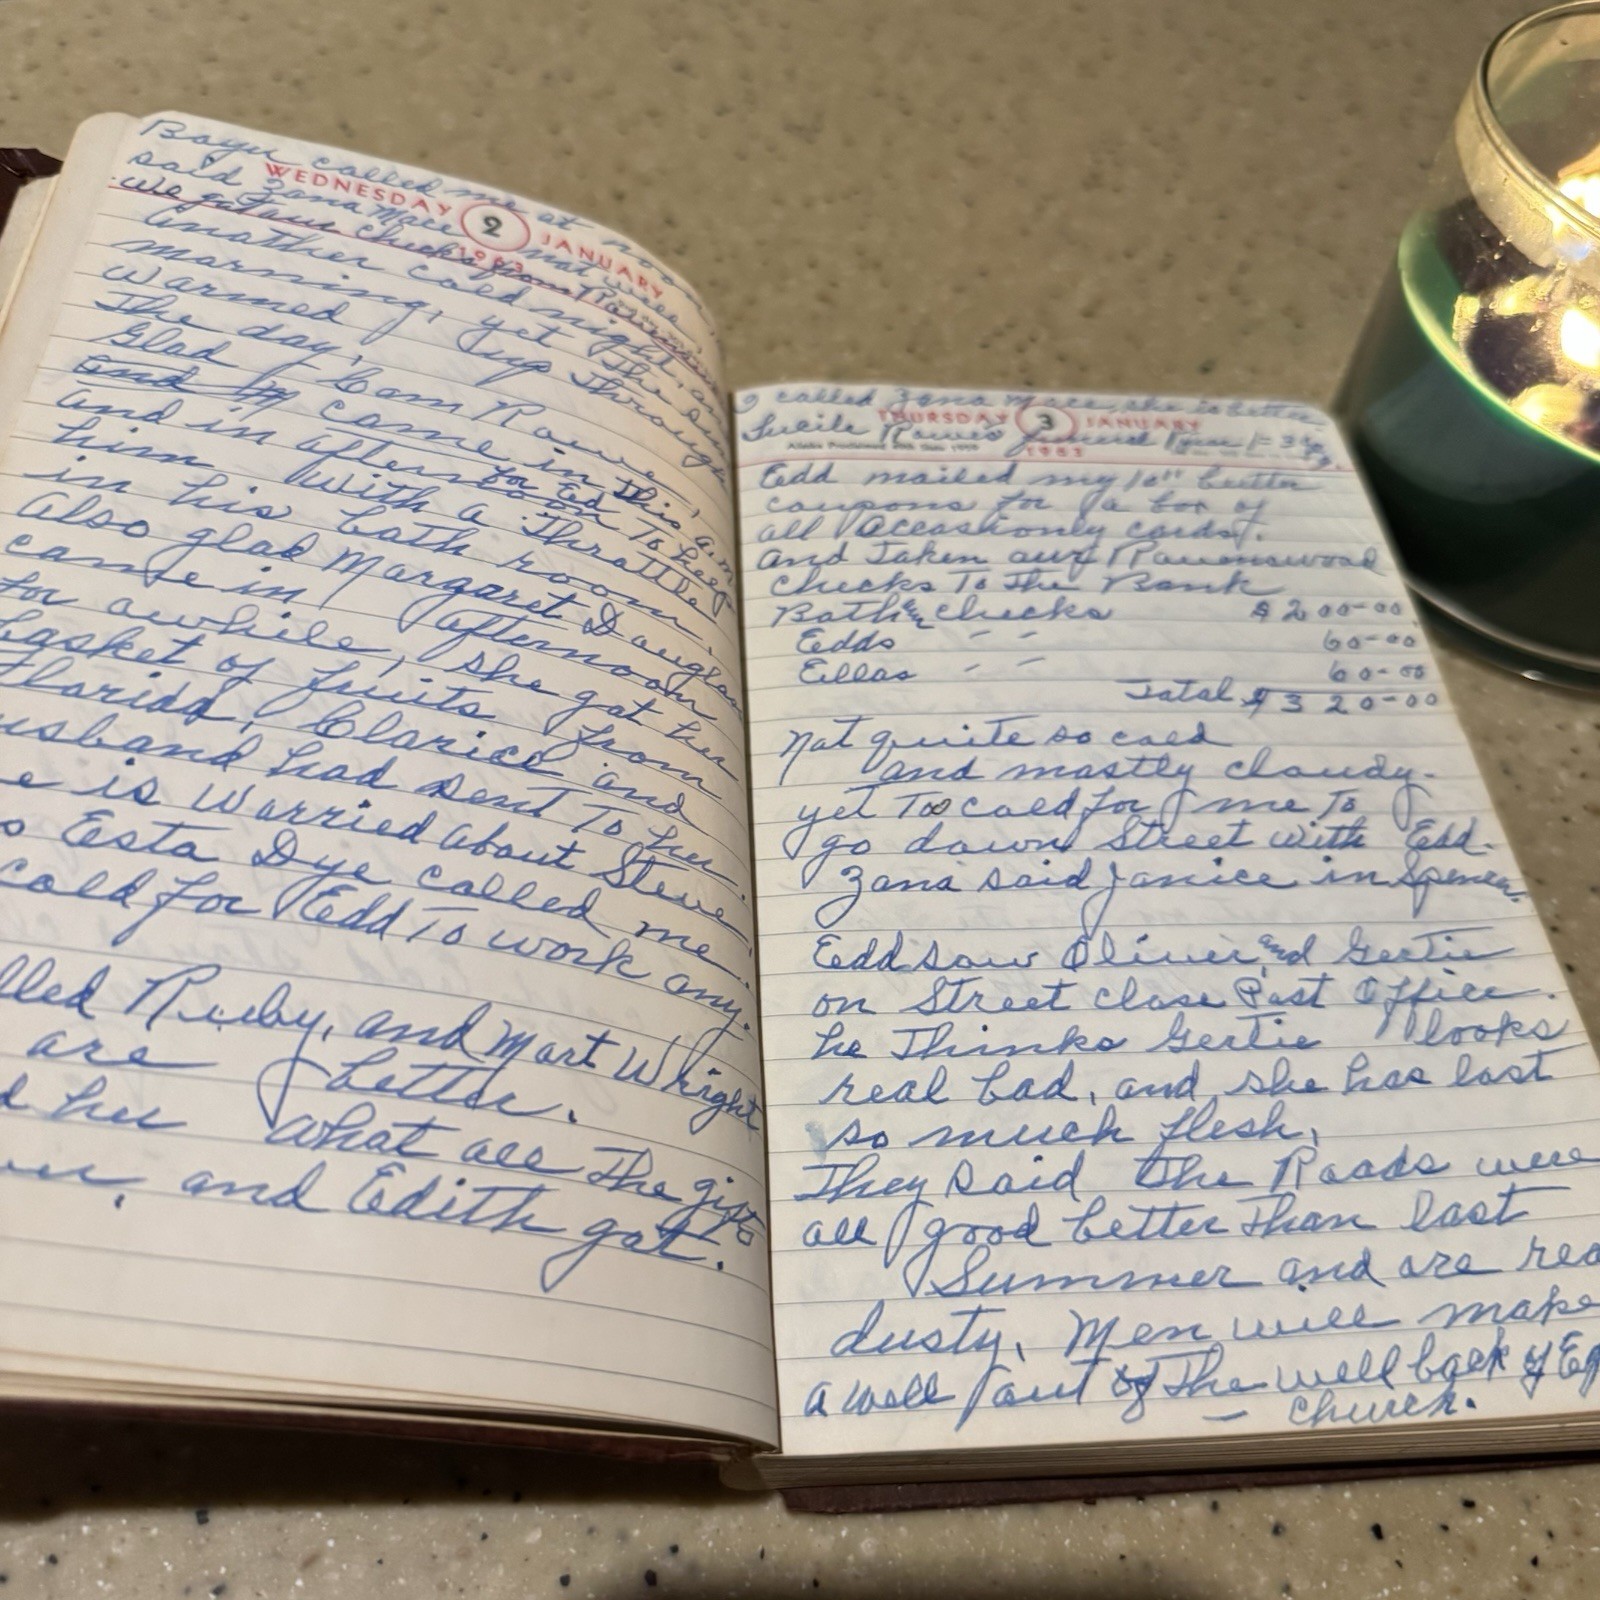 Boyer called me at noon
said Zana Mace not well,
WEDNESDAY 2 JANUARY
1963
We got our checks from Ravenswood
Another cold night, and
morning, yet the sun
warmed up through
the day,
Glad Com Rowe,
and by came in this a.m.
and in afternoon to help
for Ed
him with a throttle
in his bath room.
Also glad Margaret Douglas
came in afternoon
for awhile, she got her
basket of fruits from
Florida, Clarice and
husband had sent to her.
e is worried about Steve.
o Esta Dye called me.
cold for Edd to work any.
lled Ruby, and Mart Wright
are better.
d her what all the gifts
and Edith got.
I called Zana Mace, she is better
THURSDAY 3 JANUARY
1963
Lucile Rowes funeral
Edd mailed my 10" butter
coupons for a box of
all Occashionly cards.
and taken our Ravenswood
checks to the Bank
Both checks $200-00
Edds " " 60-00
Ellas " " 60-00
Total $320-00
Not quite so cold
and mostly cloudy.
yet too cold for me to
go down Street with Edd.
Zana said Janice in Spencer.
Edd saw Oliver and Gertie
on Street close Post Office.
he thinks Gertie looks
real bad, and she has lost
so much flesh,
They said the Roads were
all good better than last
Summer and are rea
dusty. Men will make
a well out of the well back of Ep
church.